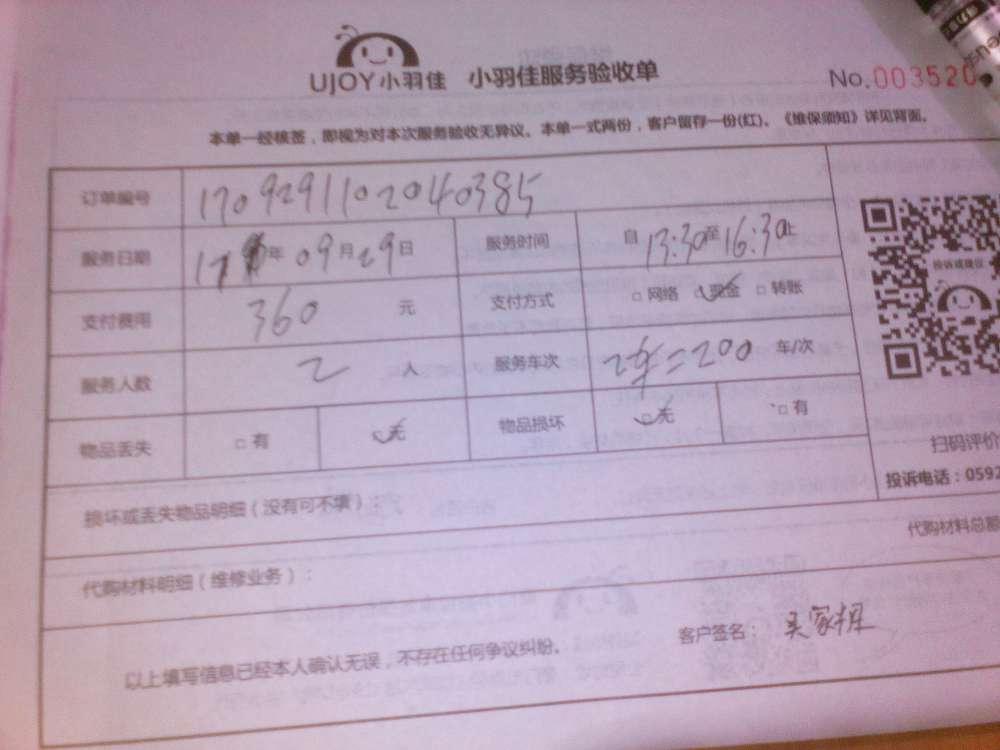 UJOY小羽佳 小羽佳服务验收单 No.003520
本单一经核签，即视为对本次服务验收无异议。本单一式两份，客户留存一份(红)。《维保须知》详见背面。
订单编号 1709291102040385
服务日期 17年09月29日 服务时间 自13:30至16:30止
支付费用 360 元 支付方式 □网络 ✓现金 □转账
服务人数 2 人 服务车次 2车=200 车/次
物品丢失 □有 ✓无 物品损坏 ✓无 □有
投诉或建议
扫码评价
投诉电话：0592
损坏或丢失物品明细（没有可不填）：
代购材料总
代购材料明细（维修业务）：
以上填写信息已经本人确认无误，不存在任何争议纠纷。 客户签名：